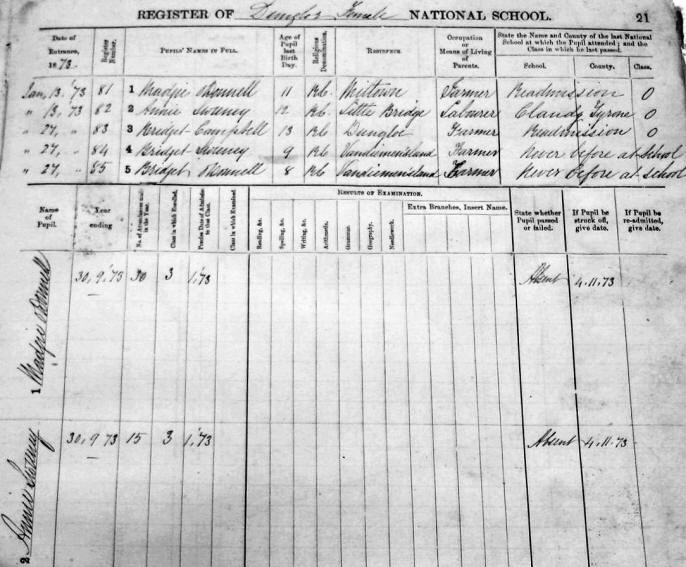 REGISTER OF Dungloe Female NATIONAL SCHOOL. 21
Date of Entrance, 1873. Register Number. PUPILS' NAMES IN FULL. Age of Pupil last Birth Day. Religious Denomination. RESIDENCE. Occupation or Means of Living of Parents. State the Name and County of the last National School at which the Pupil attended; and the Class in which he last passed.
School. County. Class.
Jan, 13, '73 81 1 Madgie O'Donnell 11 R.C. Miltown Farmer Readmission 0
" 13, '73 82 2 Annie Sweney 12 R.C. Little Bridge Labourer Claudy Tyrone 0
" 27, " 83 3 Bridget Campbell 13 R.C. Dungloe Farmer Readmission 0
" 27, " 84 4 Bridget Sweney 9 R.C. Vandiemensland Farmer Never before at School
" 27, " 85 5 Bridget O'Donnell 8 R.C. Vandiemensland Farmer Never before at School
Name of Pupil. Year ending No. of Attendances made in the Year. Class in which Enrolled. Precise Date of Admission to that Class. Class in which Examined RESULTS OF EXAMINATION. State whether Pupil passed or failed. If Pupil be struck off, give date. If Pupil be re-admitted, give date.
Reading, &c. Spelling, &c. Writing, &c. Arithmetic. Grammar. Geography. Needlework. Extra Branches, Insert Name.
1 Madgie O'Donnell 30, 9, '73 30 3 1,'73 Absent 4.11.73
2 Annie Sweney 30, 9 73 15 3 1,'73 Absent 4.11.73